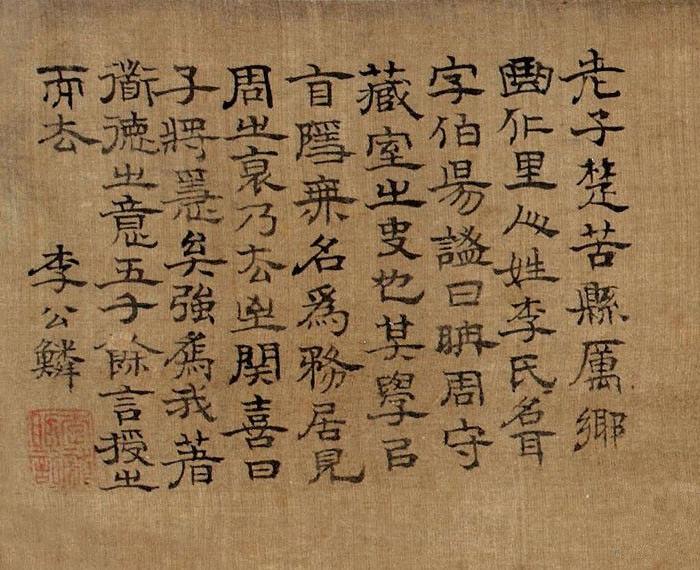 老子楚苦縣厲鄉
曲仁里人姓李氏名耳
字伯昜謚曰聃周守
藏室之史也其學以
自隱無名爲務居見
周之衰乃去至関喜曰
子將㥯矣強爲我著
衟德之意五千餘言授之
而去
李公麟